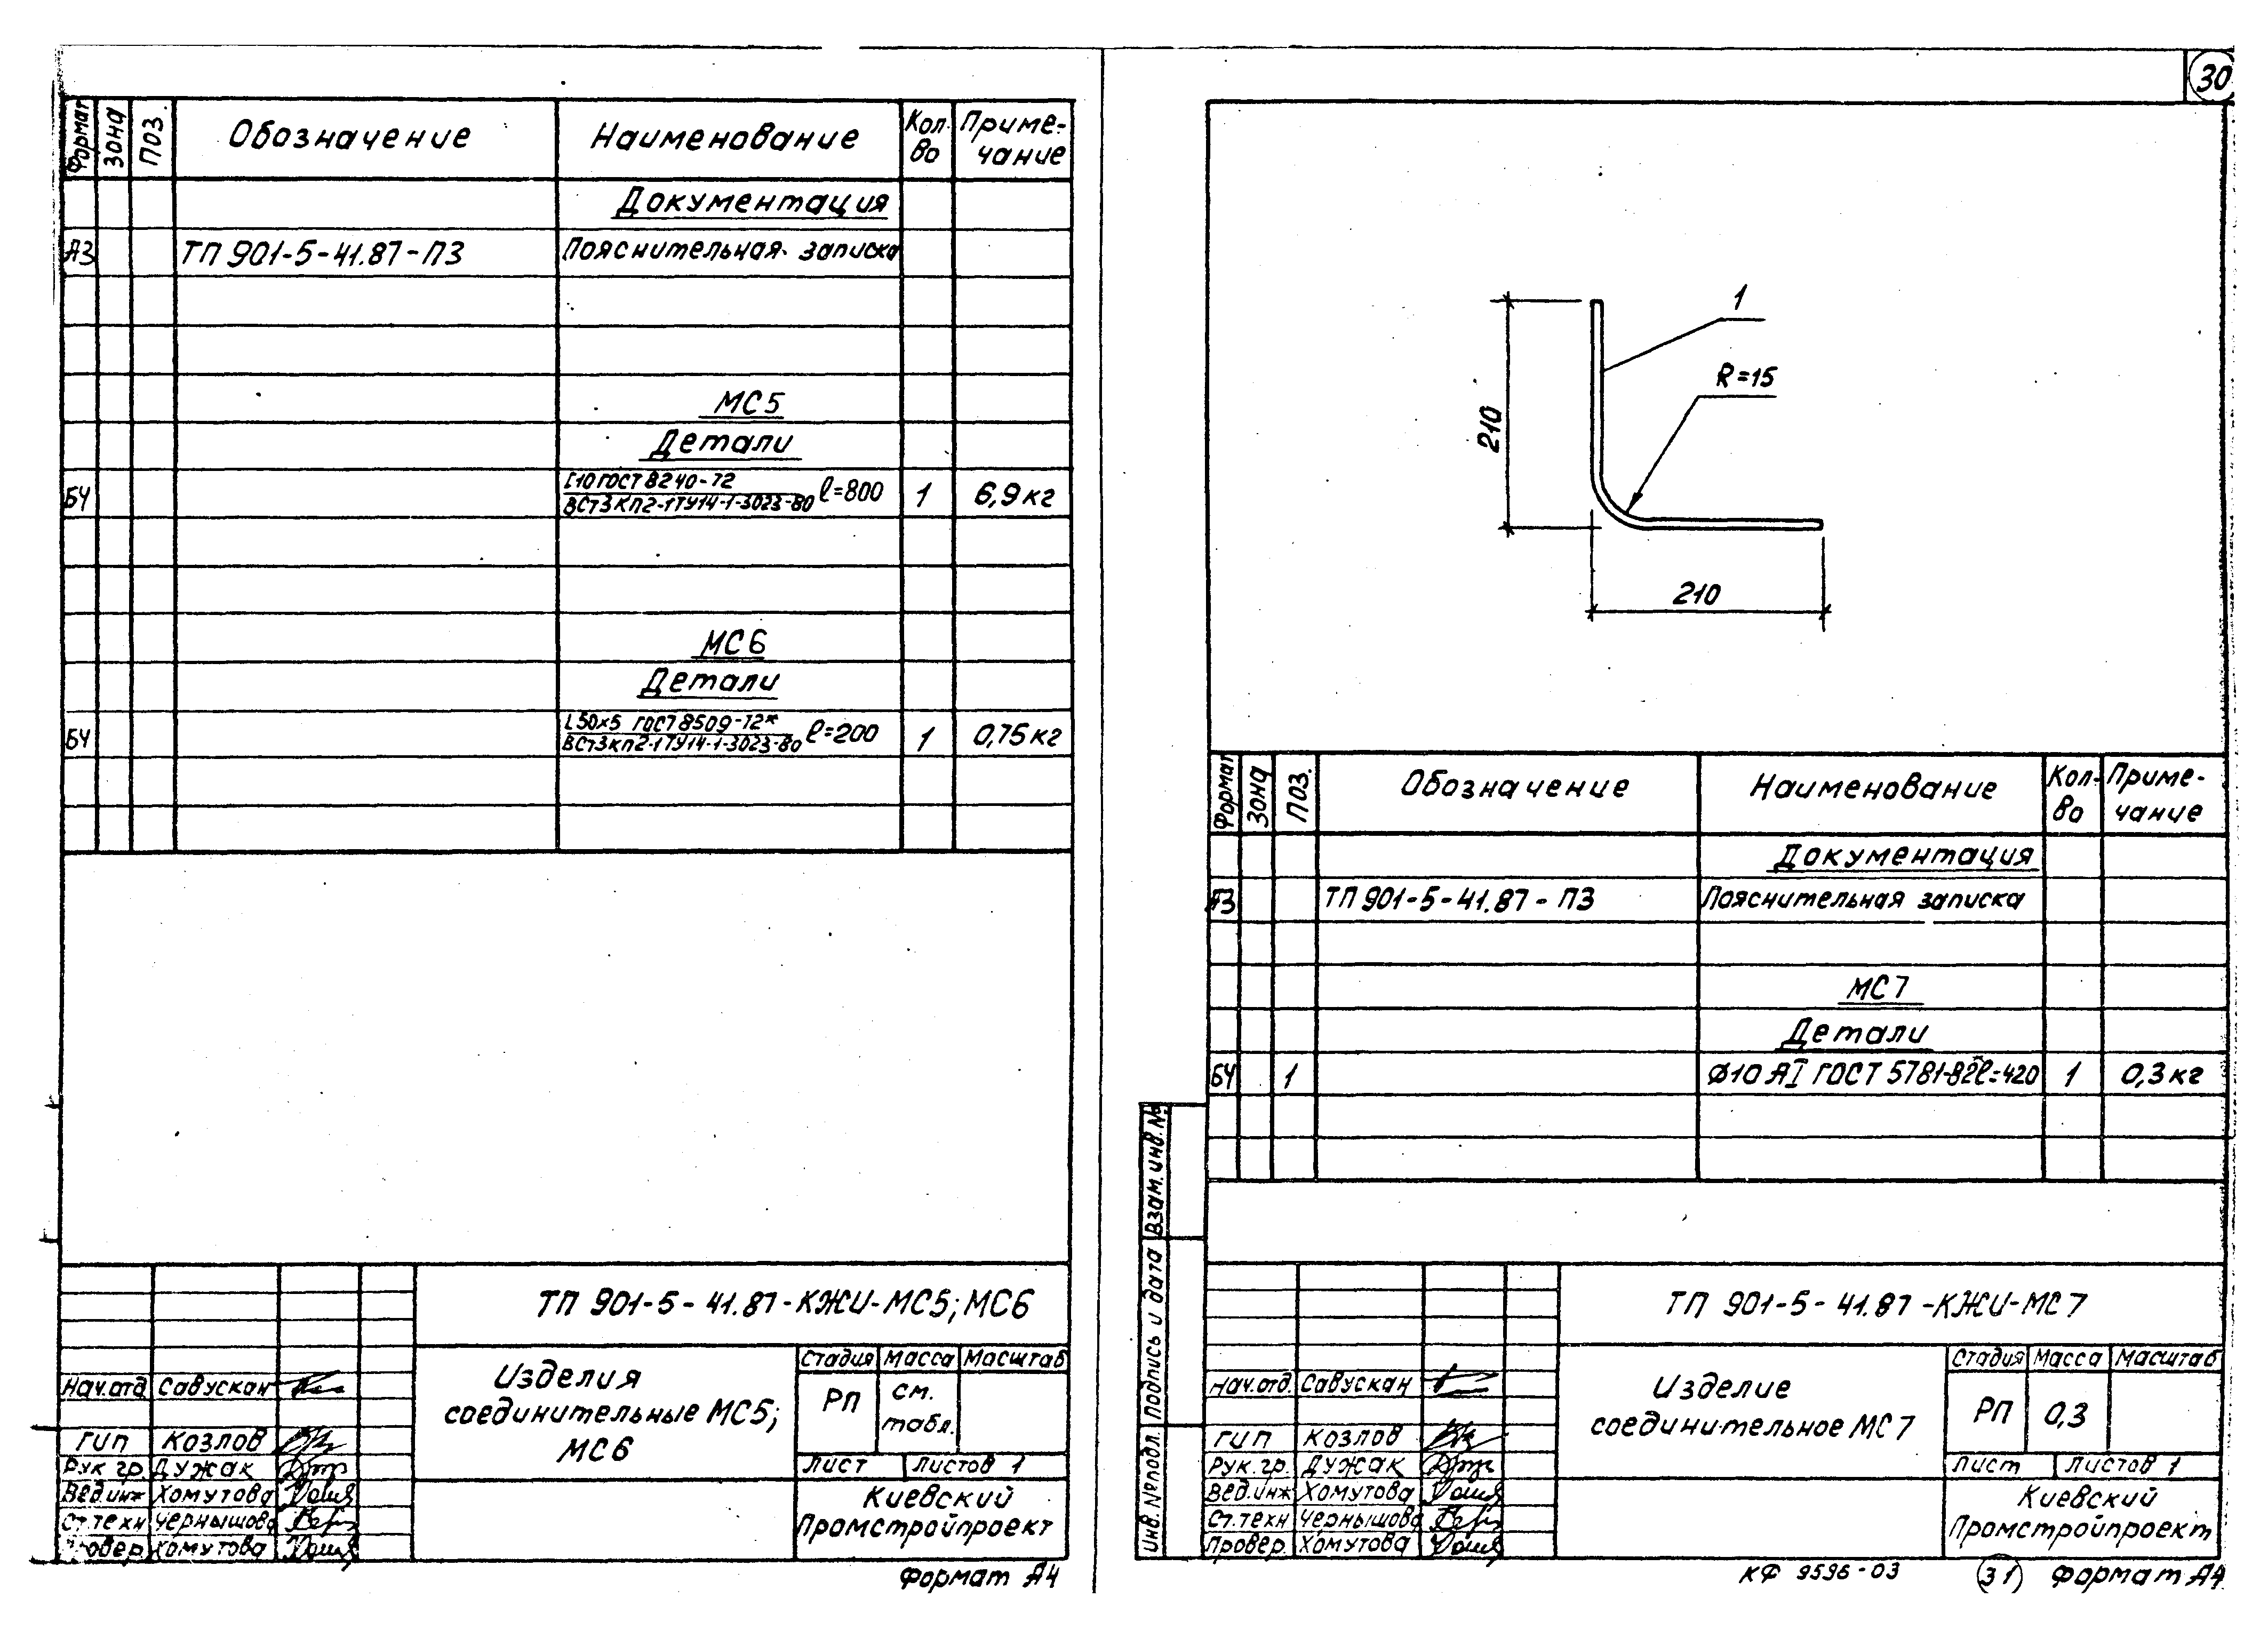 Формат Зона Поз. Обозначение Наименование Кол-во Приме-чание
Документация
А3 ТП 901-5-41.87-ПЗ Пояснительная записка
МС5
Детали
БЧ [10 ГОСТ 8240-72 ℓ=800 1 6,9 кг
ВСт3кп2-1 ТУ14-1-3023-80
МС6
Детали
БЧ L50×5 ГОСТ 8509-72* ℓ=200 1 0,75 кг
ВСт3кп2-1 ТУ14-1-3023-80
ТП 901-5-41.87-КЖИ-МС5; МС6
Изделия
соединительные МС5;
МС6
Стадия Масса Масштаб
РП см.
табл.
Лист Листов 1
Киевский
Промстройпроект
Нач.отд. Савускан
ГИП Козлов
Рук гр. Дужак
Вед.инж Хомутова
Ст.техн Чернышова
Провер. Хомутова
Формат А4
30
1
R=15
210
210
Формат Зона Поз. Обозначение Наименование Кол-во Приме-чание
Документация
А3 ТП 901-5-41.87-ПЗ Пояснительная записка
МС7
Детали
БЧ 1 Ø10 АI ГОСТ 5781-82* ℓ=420 1 0,3 кг
Взам.инв.№
Подпись и дата
Инв.№подл.
ТП 901-5-41.87-КЖИ-МС7
Изделие
соединительное МС7
Стадия Масса Масштаб
РП 0,3
Лист Листов 1
Киевский
Промстройпроект
Нач.отд. Савускан
ГИП Козлов
Рук.гр. Дужак
Вед.инж Хомутова
Ст.техн Чернышова
Провер. Хомутова
КФ 9596-03 31 Формат А4